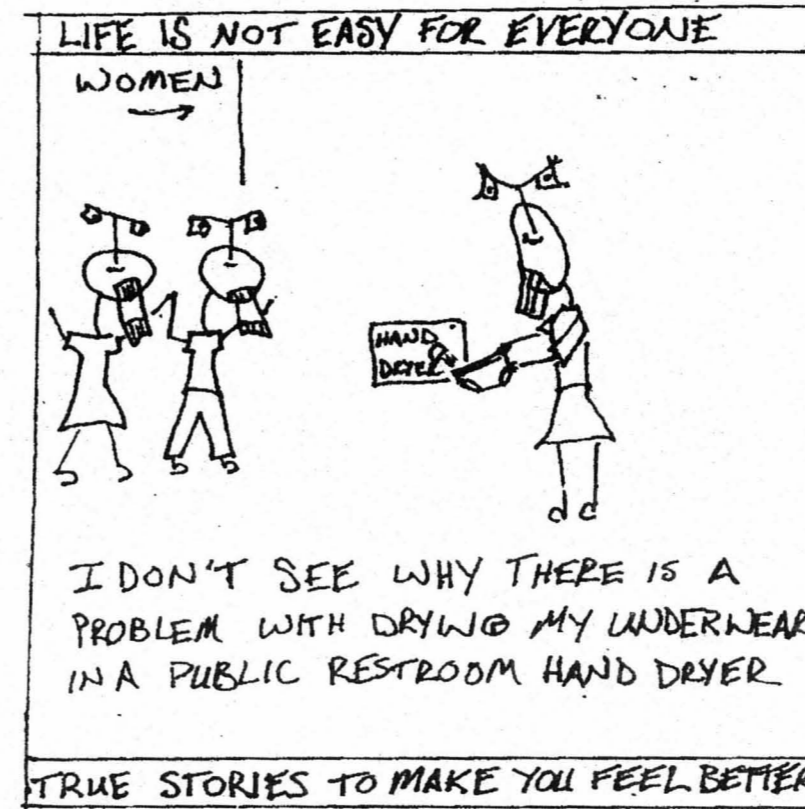 LIFE IS NOT EASY FOR EVERYONE
WOMEN
HAND
DRYER
I DON'T SEE WHY THERE IS A
PROBLEM WITH DRYING MY UNDERWEAR
IN A PUBLIC RESTROOM HAND DRYER
TRUE STORIES TO MAKE YOU FEEL BETTER